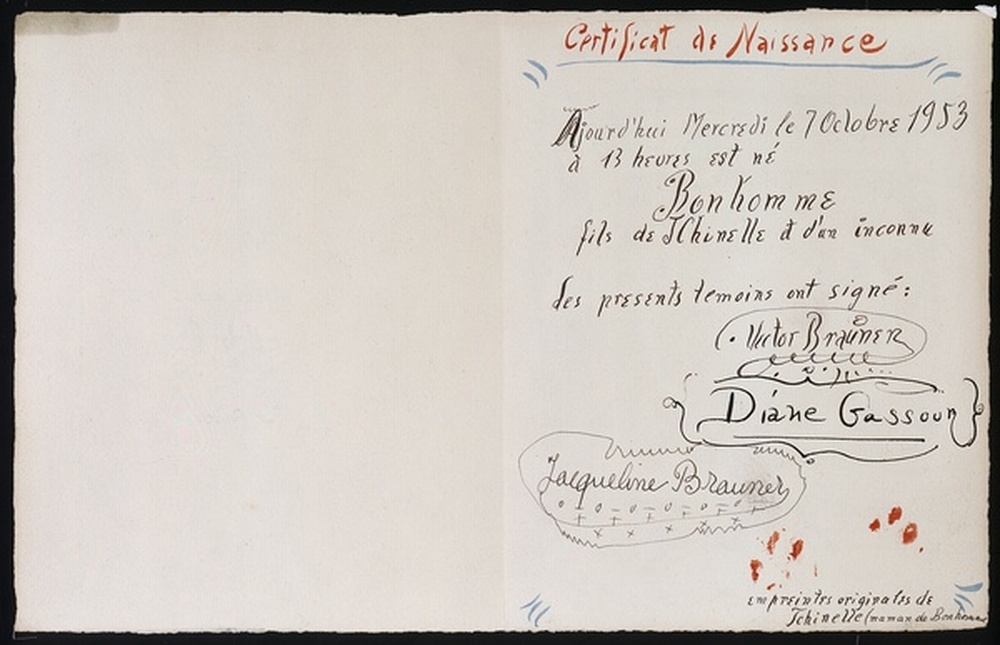 Certificat de Naissance
Ajourd'hui Mercredi le 7 Octobre 1953
à 13 heures est né
Bonhomme
fils de TChinelle et d'un inconnu
des presents temoins ont signé:
Victor Brauner
Diane Gassoun
Jacqueline Brauner
empreintes originales de
Tchinelle (maman de Bonhomme